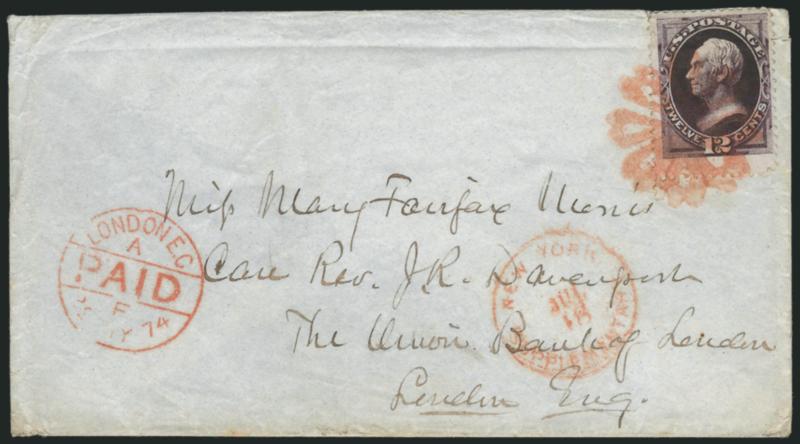 U.S. POSTAGE
TWELVE 12 CENTS
Miss Mary Fairfax Morris
Care Rev. J. R. Davenport
The Union Bank of London
London Eng.
LONDON E.C.
A
PAID
74
NEW YORK
JUL